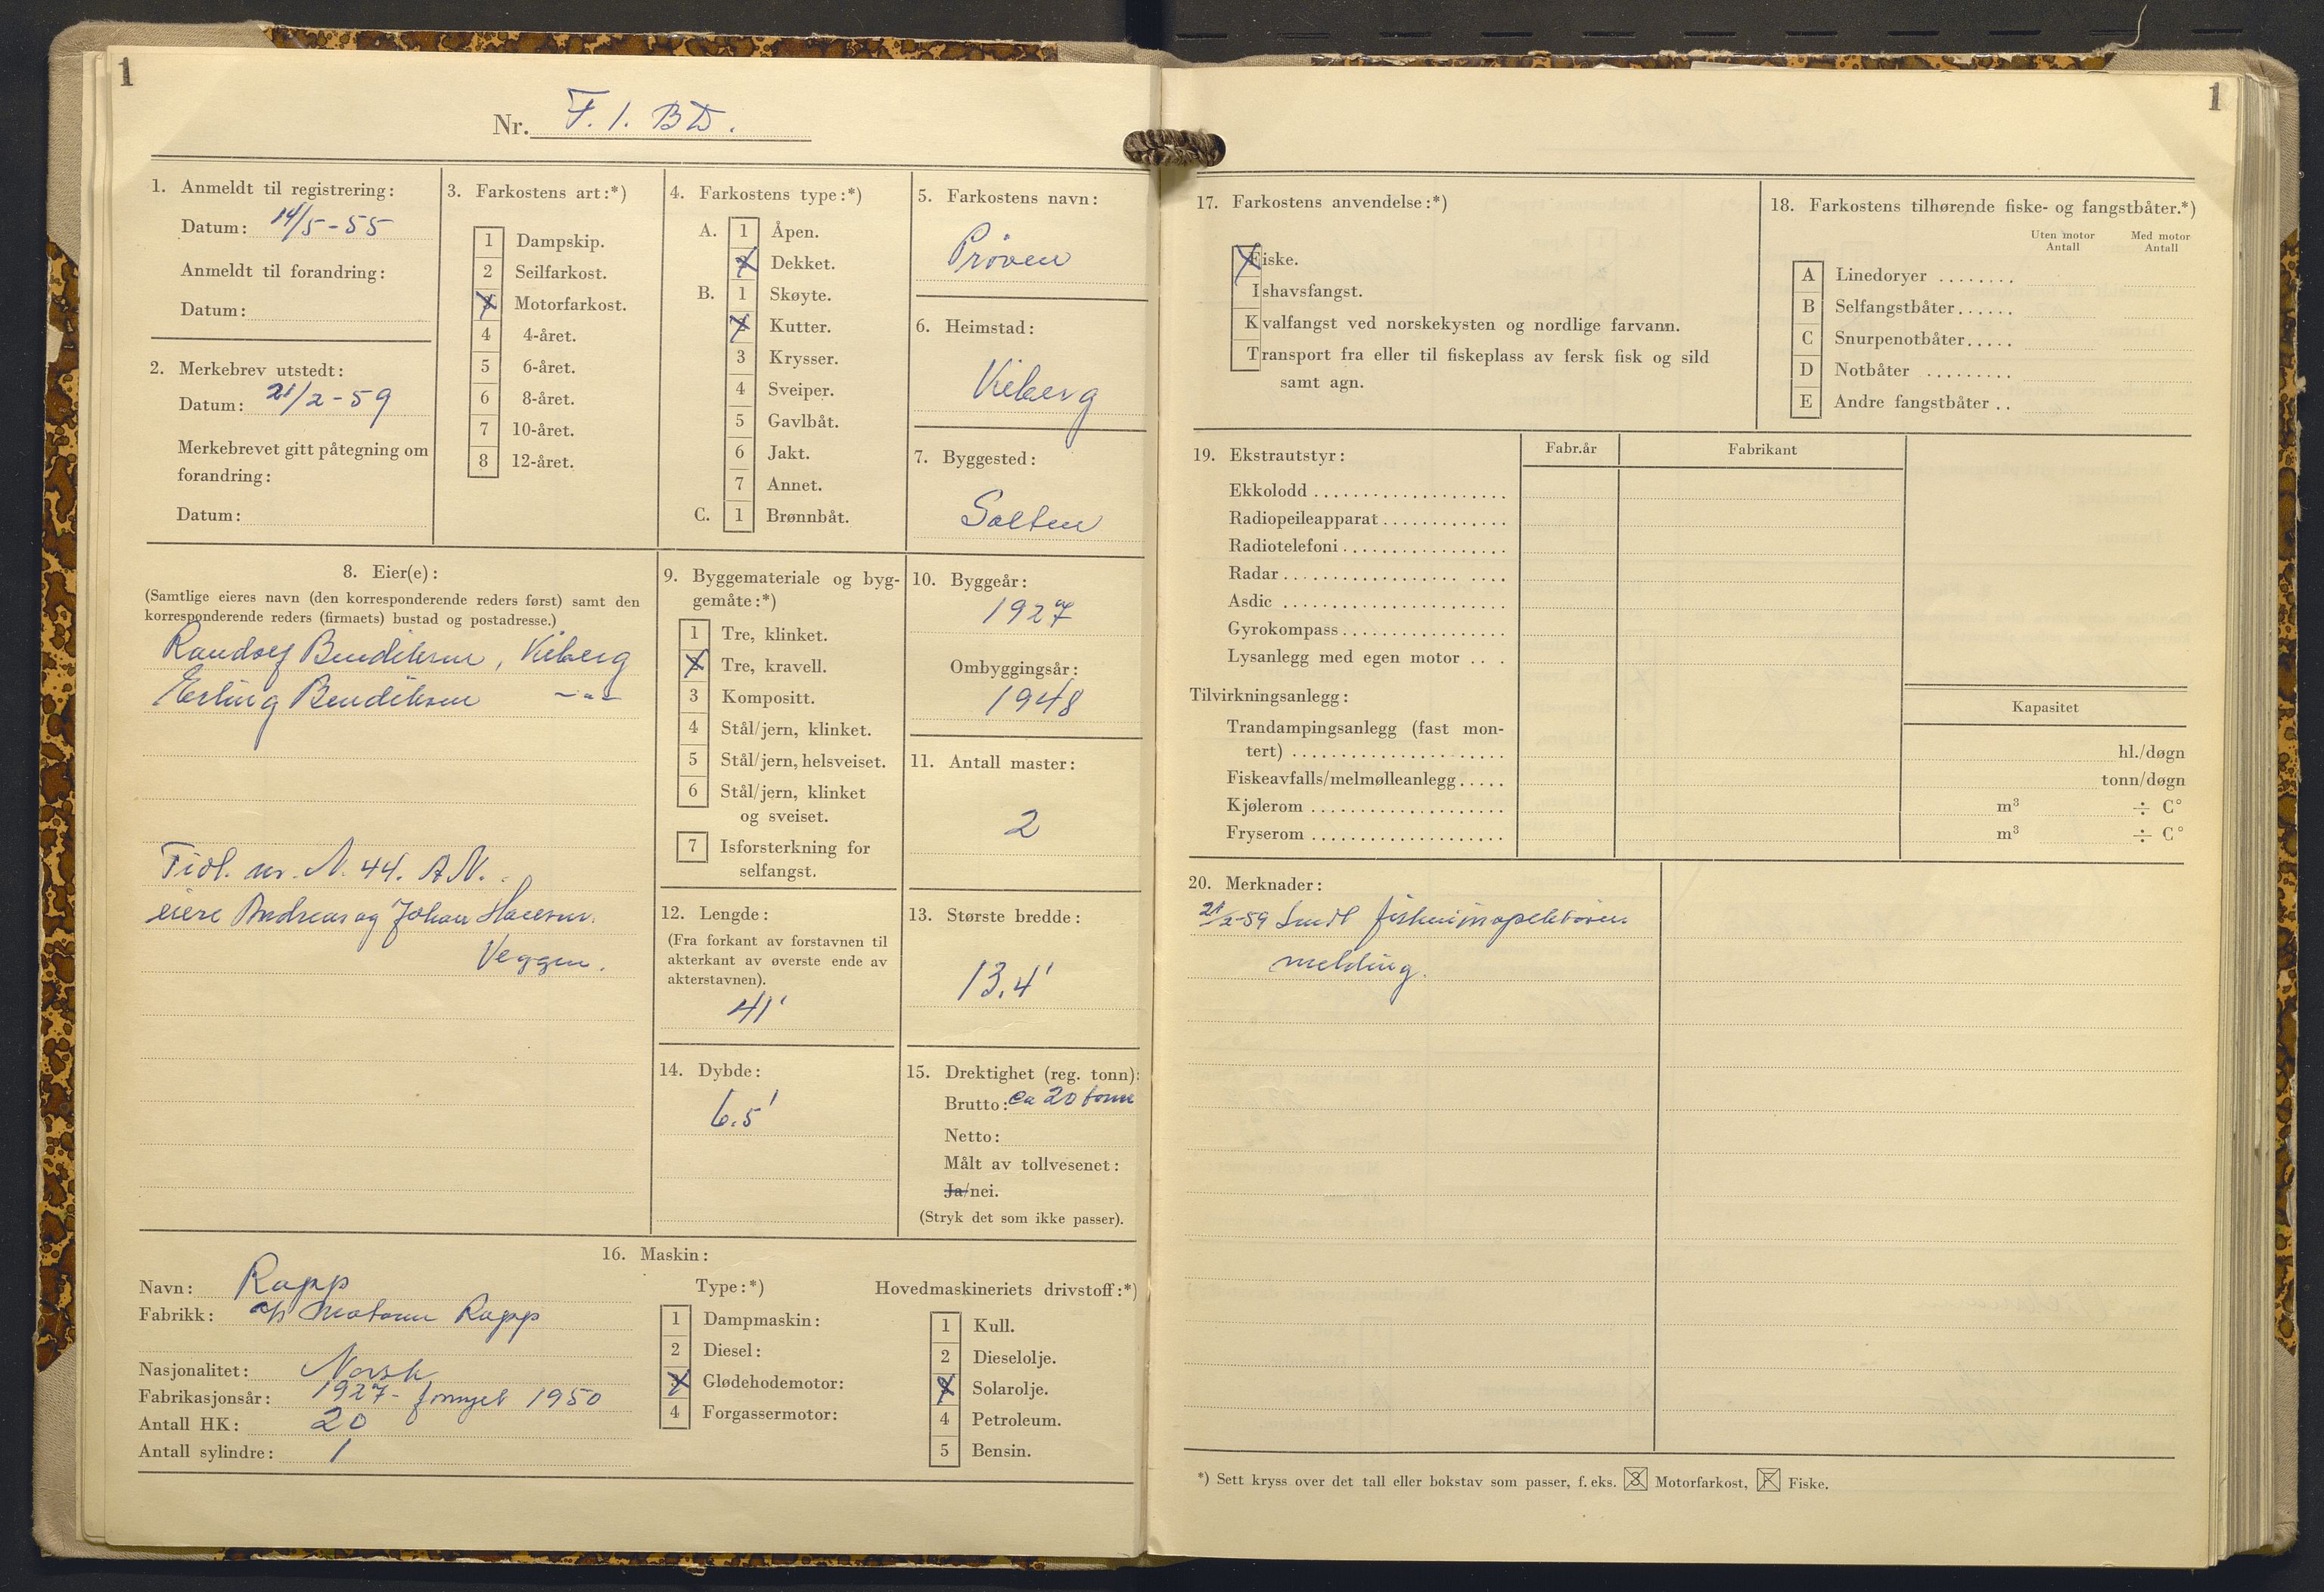 1
Nr. F. 1. BD.
1. Anmeldt til registrering:
Datum: 14/5-55
Anmeldt til forandring:
Datum:
2. Merkebrev utstedt:
Datum: 21/2-59
Merkebrevet gitt påtegning om
forandring:
Datum:
3. Farkostens art:*)
1 Dampskip.
2 Seilfarkost.
X Motorfarkost.
4 4-året.
5 6-året.
6 8-året.
7 10-året.
8 12-året.
4. Farkostens type:*)
A. 1 Åpen.
X Dekket.
B. 1 Skøyte.
X Kutter.
3 Krysser.
4 Sveiper.
5 Gavlbåt.
6 Jakt.
7 Annet.
C. 1 Brønnbåt.
5. Farkostens navn:
Prøven
6. Heimstad:
Kiberg
7. Byggested:
Salten
8. Eier(e):
(Samtlige eieres navn (den korresponderende reders først) samt den
korresponderende reders (firmaets) bustad og postadresse.)
Randolf Bendiksen, Kiberg
Erling Bendiksen -"-
Tidl. nr. N. 44. AN.
eiere Andreas og Johan
Veggen.
9. Byggemateriale og byg-
gemåte:*)
1 Tre, klinket.
X Tre, kravell.
3 Kompositt.
4 Stål/jern, klinket.
5 Stål/jern, helsveiset.
6 Stål/jern, klinket
og sveiset.
7 Isforsterkning for
selfangst.
10. Byggeår:
1927
Ombyggingsår:
1948
11. Antall master:
2
12. Lengde:
(Fra forkant av forstavnen til
akterkant av øverste ende av
akterstavnen).
41'
13. Største bredde:
13.4'
14. Dybde:
6.5'
15. Drektighet (reg. tonn):
Brutto: ca 20 tonn
Netto:
Målt av tollvesenet:
Ja/nei.
(Stryk det som ikke passer).
16. Maskin:
Navn: Rapp
Fabrikk: a/s Motoren Rapp
Nasjonalitet: Norsk
Fabrikasjonsår: 1927- fornyet 1950
Antall HK: 20
Antall sylindre: 1
Type:*)
1 Dampmaskin:
2 Diesel:
X Glødehodemotor:
4 Forgassermotor:
Hovedmaskineriets drivstoff:*)
1 Kull.
2 Dieselolje.
X Solarolje.
4 Petroleum.
5 Bensin.
1
17. Farkostens anvendelse:*)
Fiske.
Ishavsfangst.
Kvalfangst ved norskekysten og nordlige farvann.
Transport fra eller til fiskeplass av fersk fisk og sild
samt agn.
18. Farkostens tilhørende fiske- og fangstbåter.*)
Uten motor Med motor
Antall Antall
A Linedoryer
B Selfangstbåter
C Snurpenotbåter
D Notbåter
E Andre fangstbåter
19. Ekstrautstyr: Fabr.år Fabrikant
Ekkolodd
Radiopeileapparat
Radiotelefoni
Radar
Asdic
Gyrokompass
Lysanlegg med egen motor
Tilvirkningsanlegg: Kapasitet
Trandampingsanlegg (fast mon-
tert) hl./døgn
Fiskeavfalls/melmølleanlegg tonn/døgn
Kjølerom m³ ÷ C°
Fryserom m³ ÷ C°
20. Merknader:
21/2-59 Sendt fiskeriinspektøren
melding.
*) Sett kryss over det tall eller bokstav som passer, f. eks. 3 Motorfarkost, F Fiske.